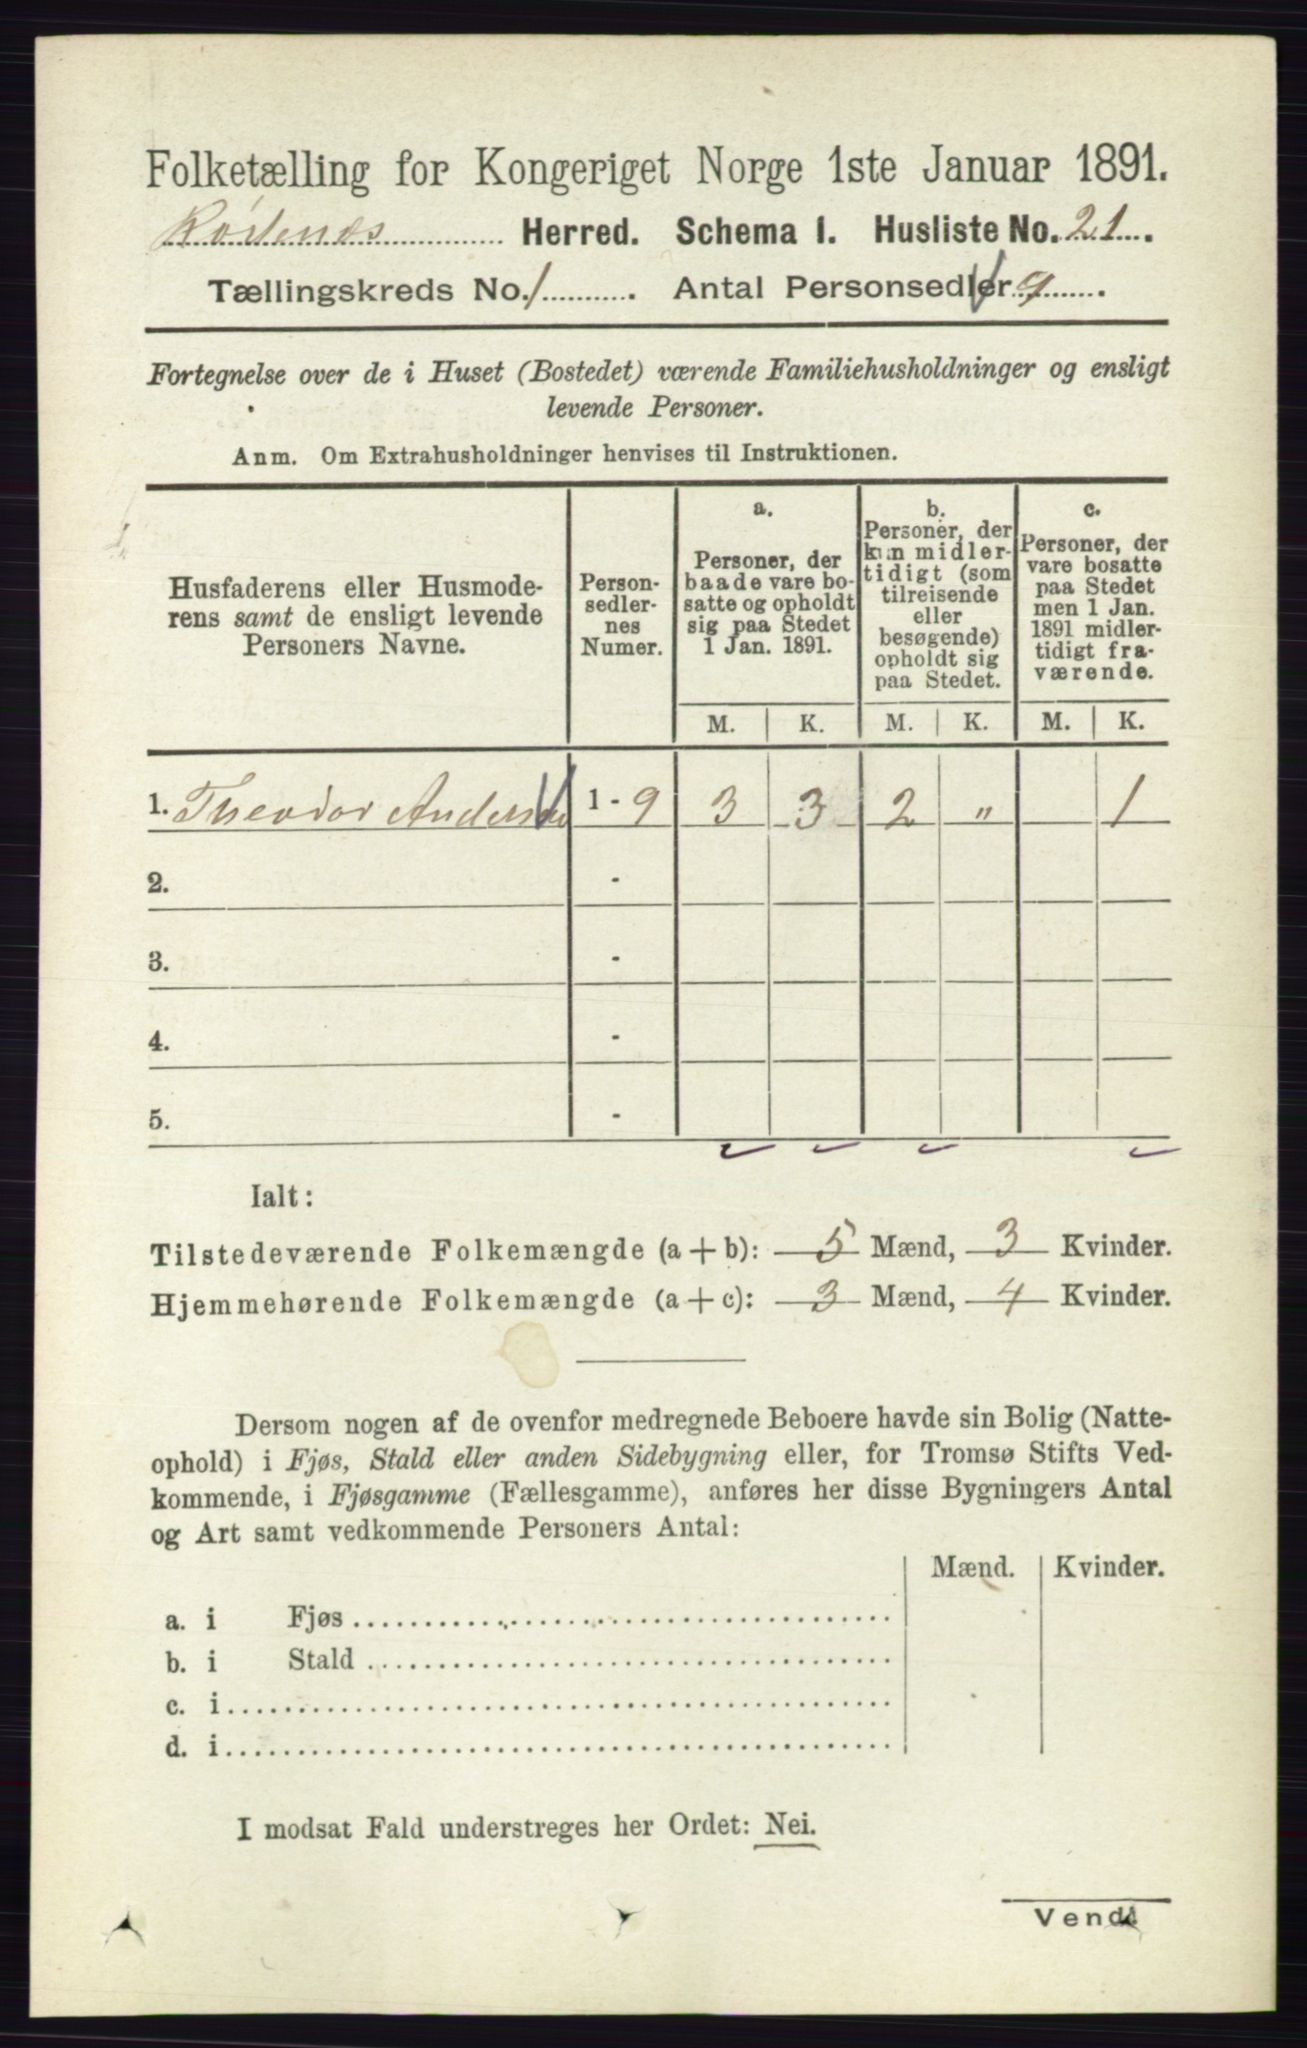 Folketælling for Kongeriget Norge 1ste Januar 1891.
Rødenæs Herred. Schema 1. Husliste No. 21.
Tællingskreds No. 1. Antal Personsedler 9.
Fortegnelse over de i Huset (Bostedet) værende Familiehusholdninger og ensligt
levende Personer.
Anm. Om Extrahusholdninger henvises til Instruktionen.
Husfaderens eller Husmode-
rens samt de ensligt levende
Personers Navne.
Person-
sedler-
nes
Numer.
a.
Personer, der
baade vare bo-
satte og opholdt
sig paa Stedet
1 Jan. 1891.
b.
Personer, der
kun midler-
tidigt (som
tilreisende
eller
besøgende)
opholdt sig
paa Stedet.
c.
Personer, der
vare bosatte
paa Stedet
men 1 Jan.
1891 midler-
tidigt fra-
værende.
M. K. M. K. M. K.
1. Theodor Andersen 1 - 9 3 3 2 " 1
2. -
3. -
4. -
5. -
Ialt:
Tilstedeværende Folkemængde (a + b): 5 Mænd, 3 Kvinder.
Hjemmehørende Folkemængde (a + c): 3 Mænd, 4 Kvinder.
Dersom nogen af de ovenfor medregnede Beboere havde sin Bolig (Natte-
ophold) i Fjøs, Stald eller anden Sidebygning eller, for Tromsø Stifts Ved-
kommende, i Fjøsgamme (Fællesgamme), anføres her disse Bygningers Antal
og Art samt vedkommende Personers Antal:
Mænd. Kvinder.
a. i Fjøs
b. i Stald
c. i
d. i
I modsat Fald understreges her Ordet: Nei.
Vend!